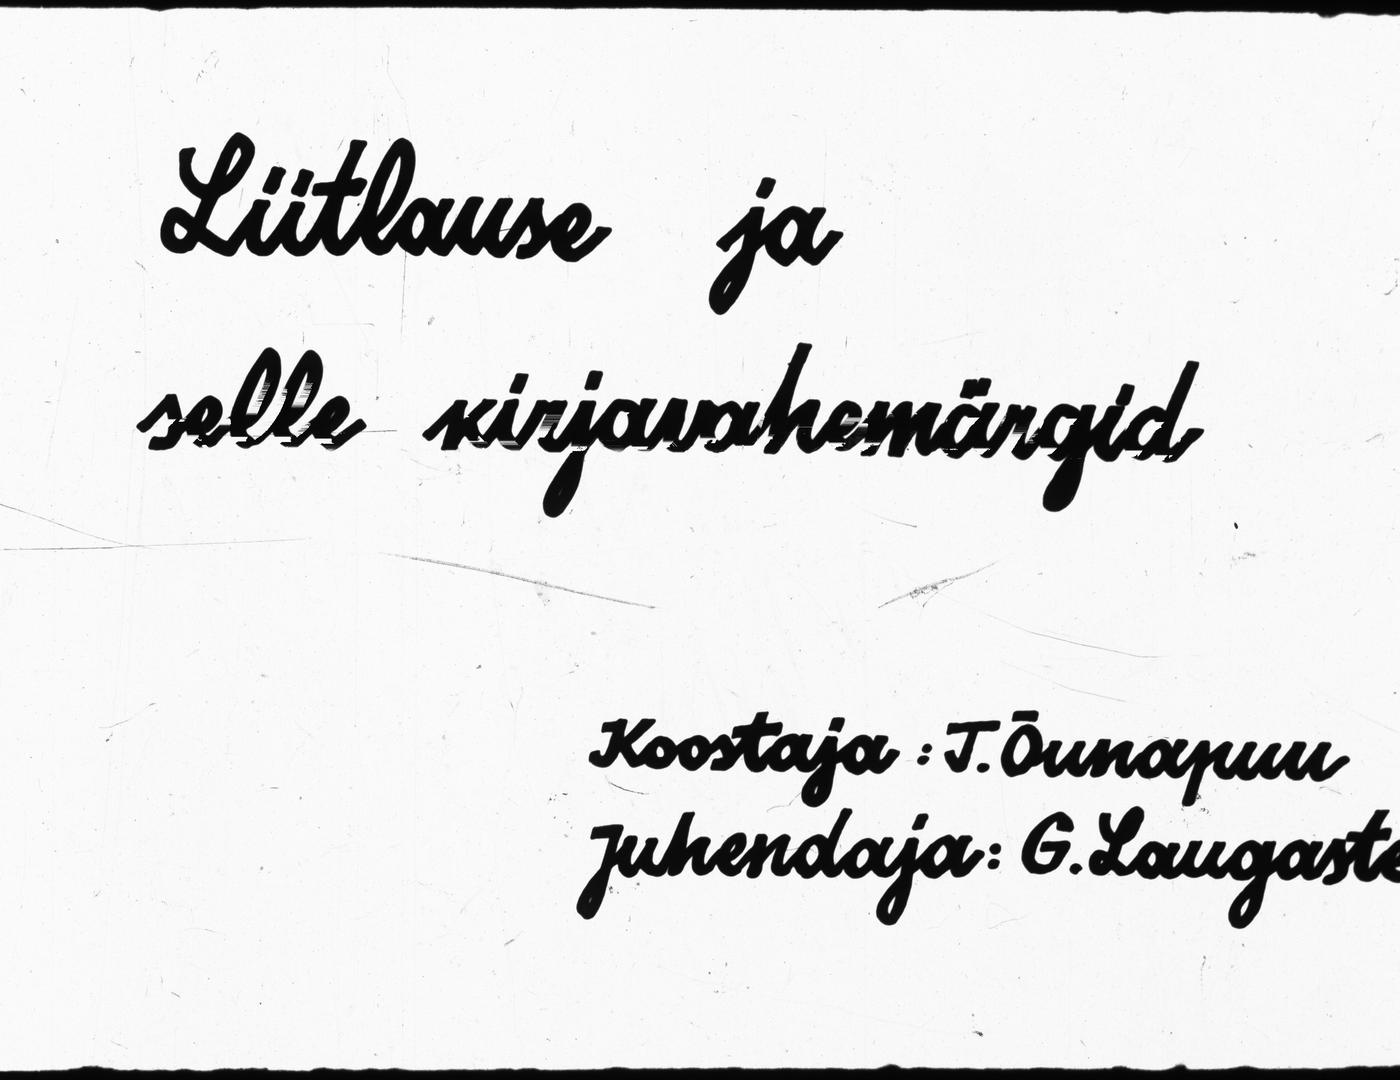 Liitlause ja
selle kirjavahemärgid
Koostaja : T. Õunapuu
Juhendaja: G. Laugaste